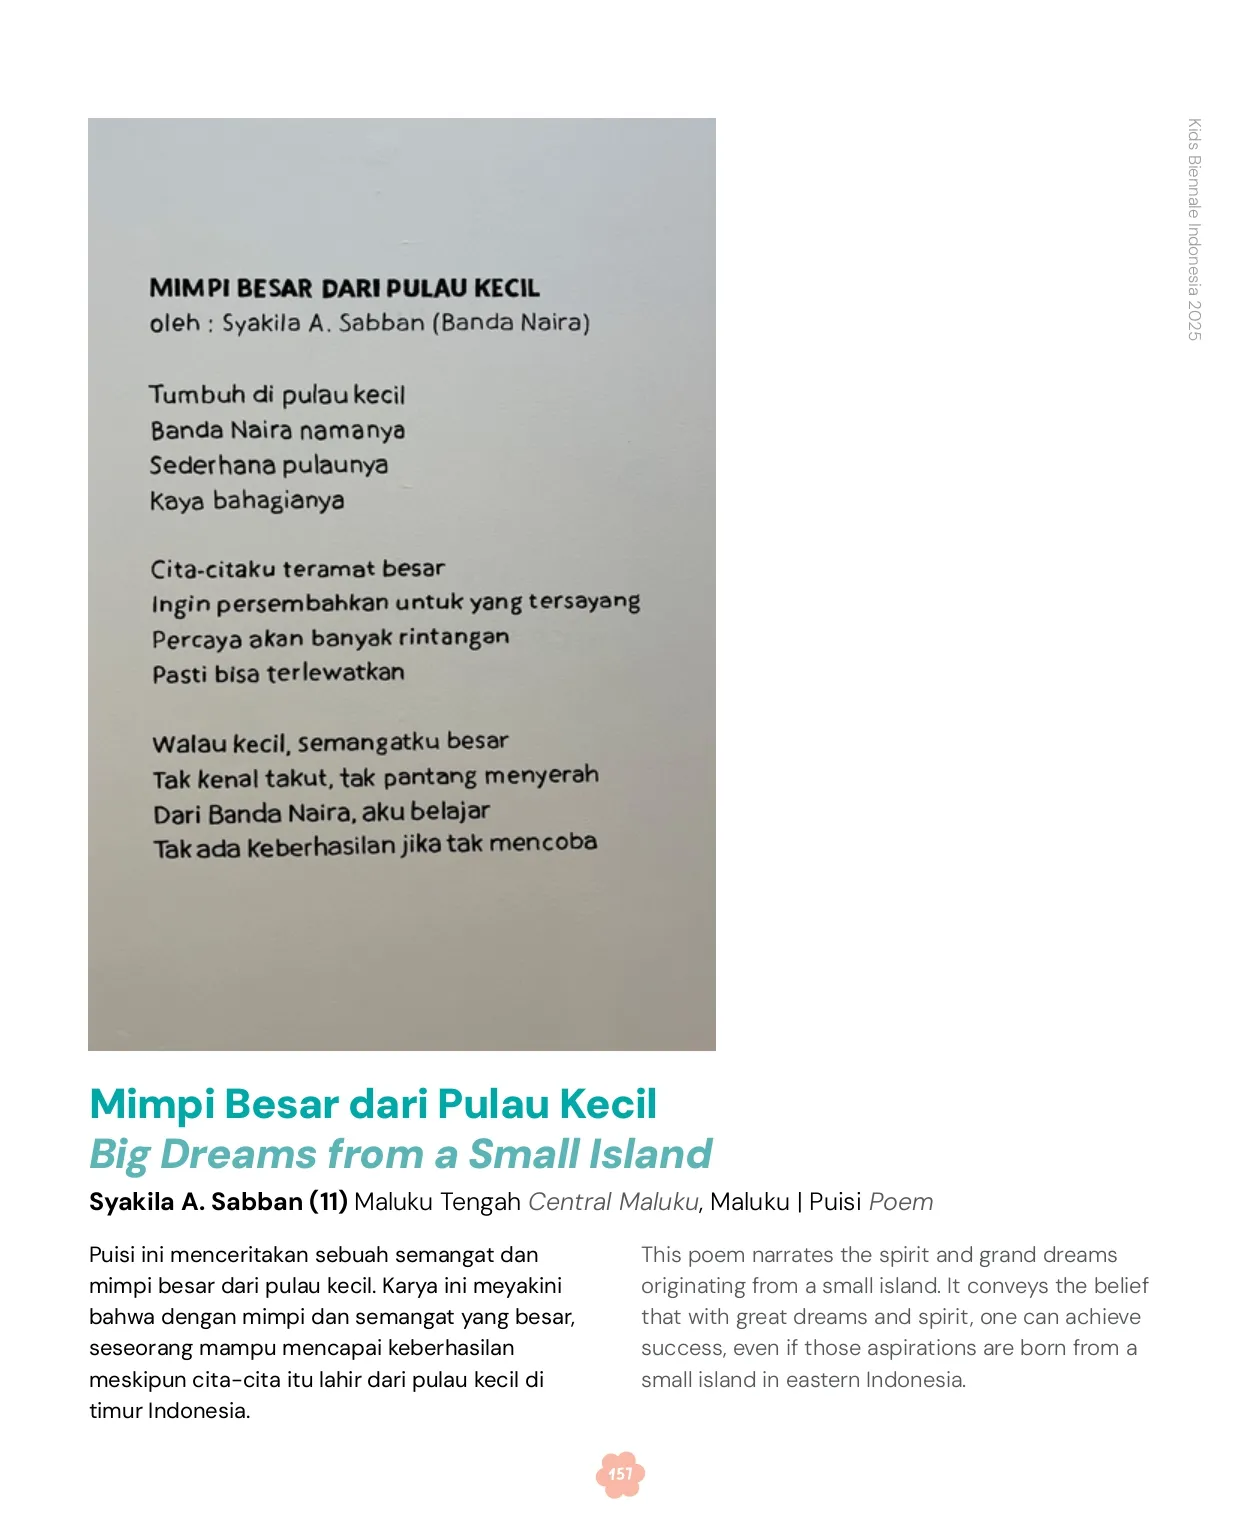 Kids Biennale Indonesia 2025
MIMPI BESAR DARI PULAU KECIL
oleh : Syakila A. Sabban (Banda Naira)
Tumbuh di pulau kecil
Banda Naira namanya
Sederhana pulaunya
Kaya bahagianya
Cita-citaku teramat besar
Ingin persembahkan untuk yang tersayang
Percaya akan banyak rintangan
Pasti bisa terlewatkan
Walau kecil, semangatku besar
Tak kenal takut, tak pantang menyerah
Dari Banda Naira, aku belajar
Tak ada keberhasilan jika tak mencoba
Mimpi Besar dari Pulau Kecil
Big Dreams from a Small Island
Syakila A. Sabban (11) Maluku Tengah Central Maluku, Maluku | Puisi Poem
Puisi ini menceritakan sebuah semangat dan
mimpi besar dari pulau kecil. Karya ini meyakini
bahwa dengan mimpi dan semangat yang besar,
seseorang mampu mencapai keberhasilan
meskipun cita-cita itu lahir dari pulau kecil di
timur Indonesia.
This poem narrates the spirit and grand dreams
originating from a small island. It conveys the belief
that with great dreams and spirit, one can achieve
success, even if those aspirations are born from a
small island in eastern Indonesia.
157